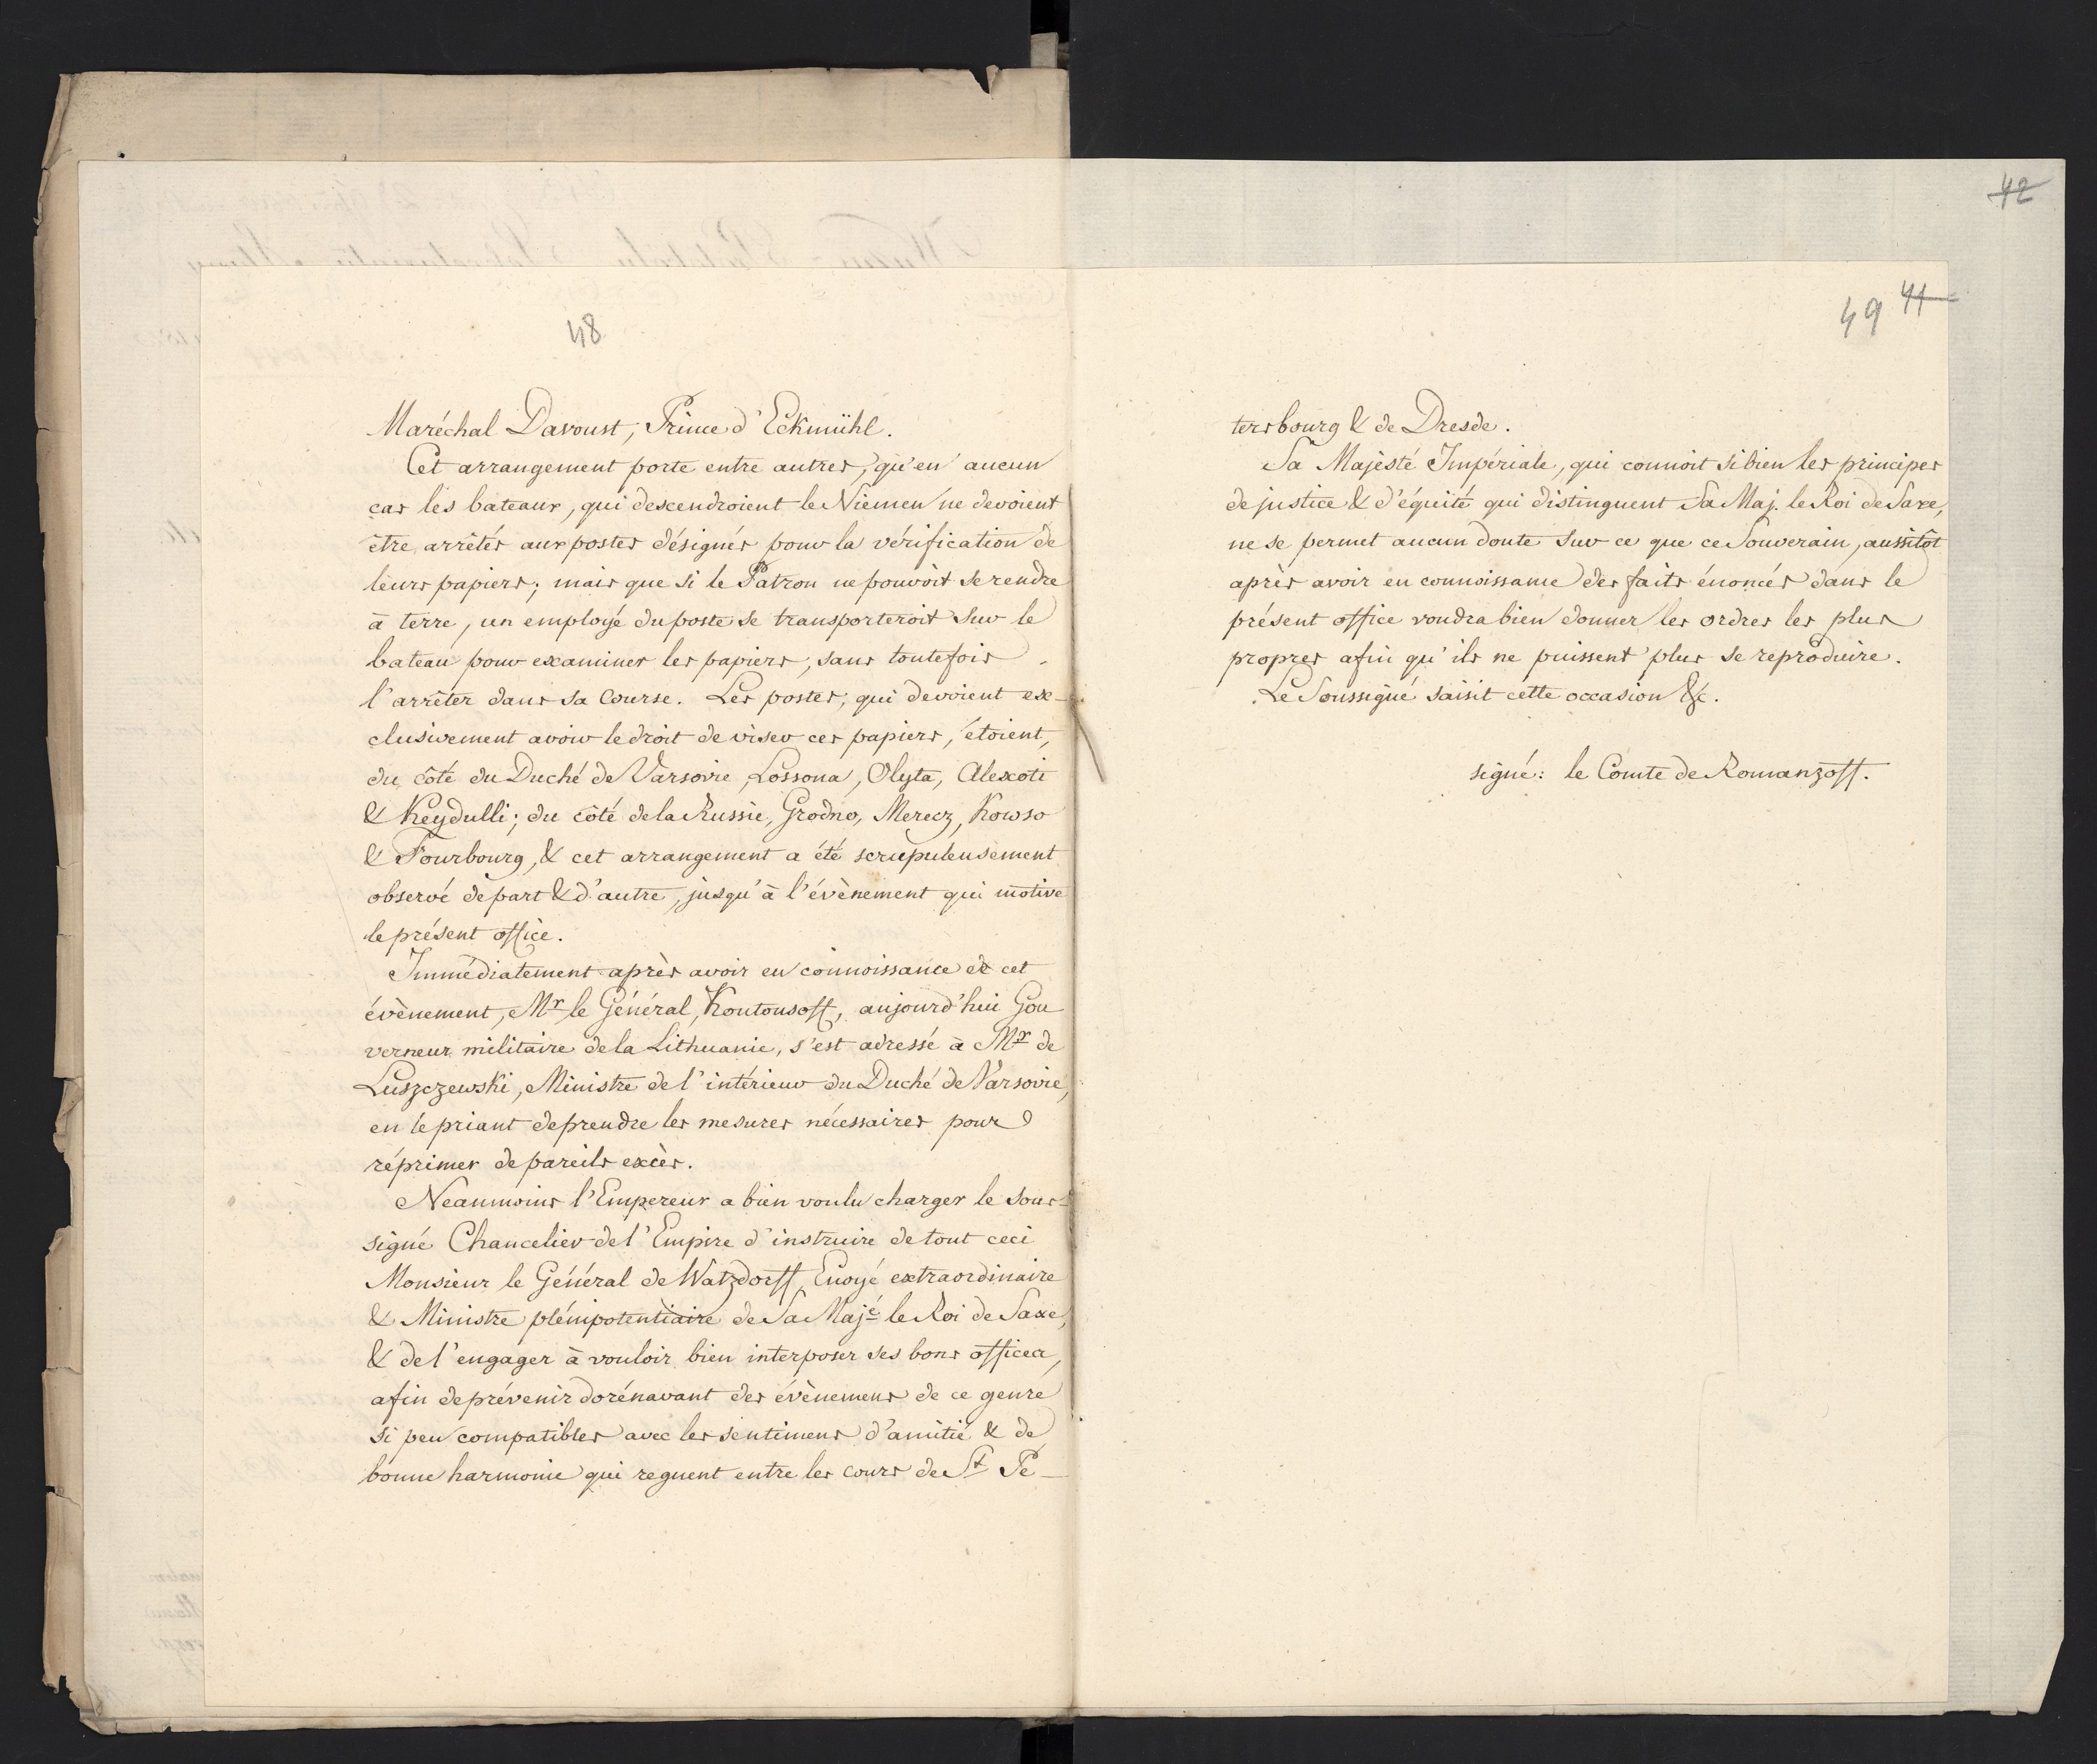 48
Maréchal Davoust, Prince d'Eckmühl.
Cet arrangement porte entre autres, qu'en aucun
cas les bateaux, qui descendroient le Niemen ne devoient
être arrêtés aux postes désignés pour la vérification de
leurs papiers; mais que si le Patron ne pouvoit se rendre
à terre, un employé du poste se transporteroit sur le
bateau pour examiner les papiers, sans toutefois
l'arrêter dans sa Course. Les postes, qui devoient ex-
clusivement avoir le droit de viser ces papiers, étoient,
du côté du Duché de Varsovie, Lossona, Olyta, Alexoti
& Keydulli; du côté de la Russie, Grodno, Merecz, Kowso
& Tourbourg, & cet arrangement a été scrupuleusement
observé de part & d'autre, jusqu'à l'évènement qui motive
le présent office.
Immédiatement après avoir eu connoissance de cet
évènement, Mr le Général Koutousoff, aujourd'hui Gou
verneur militaire de la Lithuanie, s'est adressé à Mr de
Luszczewski, Ministre de l'intérieur du Duché de Varsovie,
en le priant de prendre les mesures nécessaires pour
réprimer de pareils excès.
Neanmoins l'Empereur a bien voulu charger le sous-
signé Chancelier de l'Empire d'instruire de tout ceci
Monsieur le Général de Watzdorff, Envoyé extraordinaire
& Ministre plénipotentiaire de Sa Majé le Roi de Saxe,
& de l'engager à vouloir bien interposer ses bons offices,
afin de prévenir dorénavant des évènemens de ce genre
si peu compatibles avec les sentimens d'amitié & de
bonne harmonie qui regnent entre les cours de St Pe-
42
49 41
tersbourg & de Dresde.
Sa Majésté Impériale, qui connoit si bien les principes
de justice & d'équité qui distinguent Sa Maj. le Roi de Saxe,
ne se permet aucun doute sur ce que ce Souverain, aussitôt
après avoir eu connoissance des faits énoncés dans le
présent office voudra bien donner les ordres les plus
propres afin qu'ils ne puissent plus se reproduire.
Le Soussigné saisit cette occasion &c.
signé: le Comte de Romanzoff.